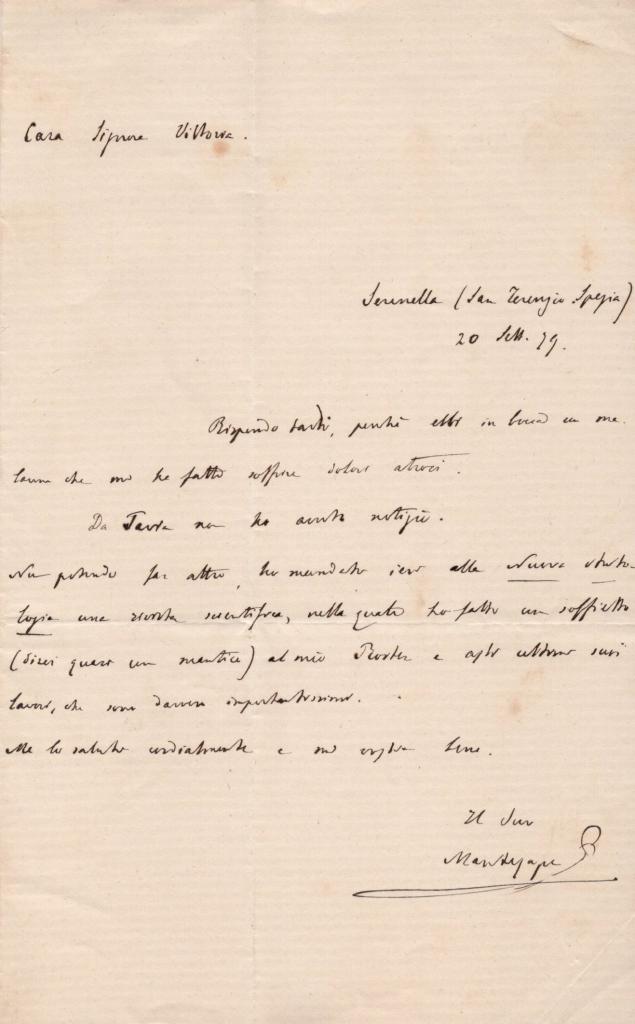 Cara Signora Vittoria.
Serenella (San Terenzio. Spezia)
20 Sett. 79.
Rispondo tardi, perchè ebbi in bocca un ma-
lanno che mi ha fatto soffrire dolori atroci.
Da non ho avuto notizie.
Non potendo far altro, ho mandato ieri alla Nuova Anto-
logia una rivista scientifica, nella quale ho fatto un soffietto
(direi quasi un mantice) al mio Roster e agli ultimi suoi
lavori, che sono davvero importantissimi.
Me lo saluti cordialmente e mi creda sempre.
Il Suo
Mantegazza